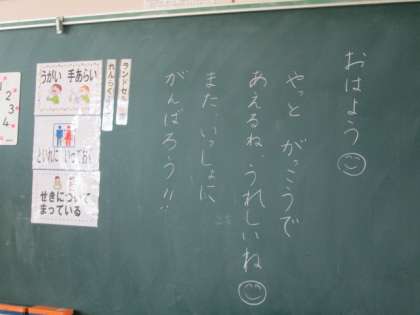 おはよう
やっと がっこうで
あえるね、うれしいね
また、いっしょに
がんばろう!!
ランドセル
れんらく
うがい 手あらい
といれに いっておく
せきについて
まっている
1
2
3
4